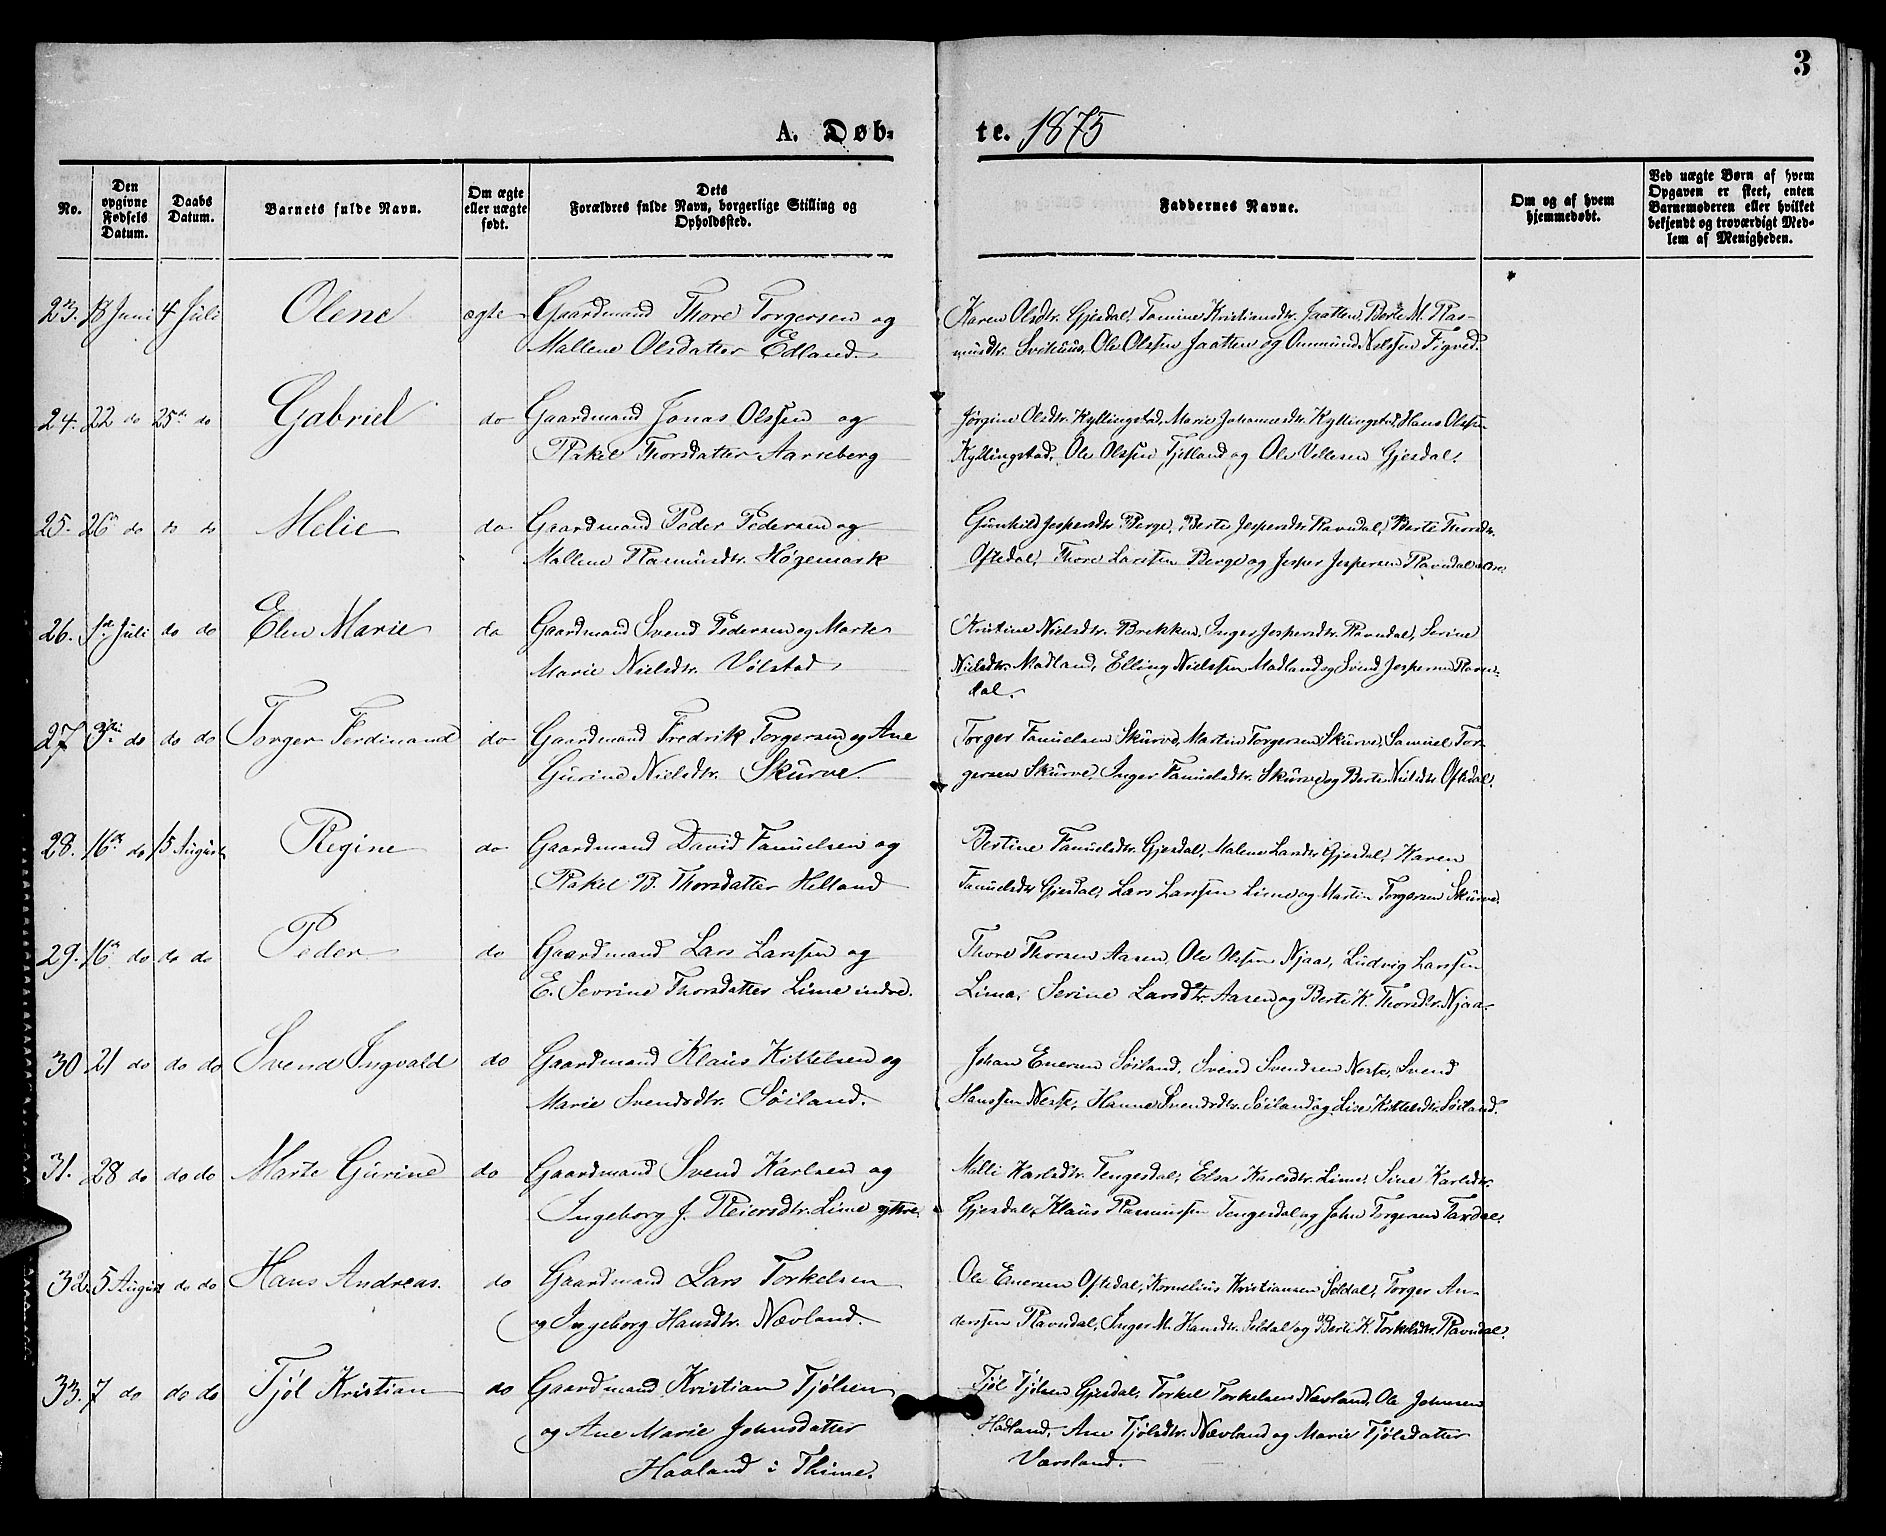 3
A. Døb-
te. 1875
No.
Den opgivne Fødsels Datum.
Daabs Datum.
Barnets fulde Navn.
Om ægte eller uægte født.
Dets Forældres fulde Navn, borgerlige Stilling og Opholdssted.
Faddernes Navne.
Om og af hvem hjemmedøbt.
Ved uægte Børn af hvem Opgaven er skeet, enten Barnemoderen eller hvilket bekjendt og troværdigt Medlem af Menigheden.
23. 18 Juni 4 Juli Olene ægte Gaardmand Thore Torgersen og
Mallene Olsdatter Edland.
Karen Olsdtr. Gjesdal, Tomine Kristiansdtr. Jaatten, Berte M. Ras-
musdtr. Ole Olssen Jaatten og Nilssen Figved.
24. 22 do 25de do Gabriel do Gaardmand Jonas Olssen og
Rakel Thorsdatter Aarreberg
Jørgine Olsdtr. Kyllingstad, Marie Johannesdtr. Kyllingstad, Hans Olssen
Kyllingstad, Ole Olssen Fjelland og Ole Gjesdal.
25. 26 do do do Melie do Gaardmand Peder Pedersen og
Mallene Rasmusdtr. Høgemark
Gunhild Jespersdtr. Berge, Berte Jespersdtr. Ravndal, Berte Thorsdtr.
Oftedal, Thore Larssen Berge og Jesper Jespersen Ravndal
26. 1ste Juli do do Elen Marie do Gaardmand Svend Pedersen og Marte
Marie Nielsdtr. Vølstad.
Kristine Nielsdtr. Brekken, Inger Jespersdtr. Ravndal, Serine
Nielsdtr. Madland, Elling Nielssen Madland og Svend Jespersen Ravn-
dal.
27. 3die do do do Torger Ferdinand do Gaardmand Fredrik Torgersen og Ane
Gurine Nielsdtr. Skurve.
Torger Fanuelsen Skurve, Martin Torgersen Skurve, Samuel Tor-
gersen Skurve, Inger Fanuelsdtr. Skurve og Berte Nielsdtr. Oftedal.
28. 16de do 15 August Regine do Gaardmand David Fanuelsen og
Rakel B. Thorsdatter Helland
Bertine Fanuelsdtr. Gjesdal, Malene Larsdtr. Gjesdal, Karen
Fanuelsdtr. Gjesdal, Lars Larssen Lime og Martin Torgersen Skurve.
29. 16de do do do Peder do Gaardmand Lars Larssen og
E. Sevrine Thorsdatter Lime indre.
Thore Thorsen Aasen, Ole Olssen Njaa, Ludvig Larssen
Lima, Serine Larsdtr. Aasen og Berte K. Thorsdtr. Njaa.
30 21 do do do Svend Ingvald do Gaardmand Klaus Kittelsen og
Marie Svendsdtr. Søiland.
Johan Enersen Søiland, Svend Svendsen Nesse, Svend
Hanssen Nesse, Hanne Svendsdtr. Søiland og Lise Kittelsdtr. Søiland.
31. 28 do do do Marte Gurine do Gaardmand Svend Karlsen og
Ingeborg J. Reiersdtr. Lime yttre.
Malli Karlsdtr. Tengesdal, Elsa Karlsdtr. Lime, Sine Karlsdtr.
Gjesdal, Klaus Rasmussen Tengesdal og John Torgersen
32. 5 August do do Hans Andreas. do Gaardmand Lars Torkelsen
og Ingeborg Hansdtr. Nævland.
Ole Enersen Oftedal, Kornelius Kristiansen Seldal, Torger An-
derssen Ravndal, Inger M. Hansdtr. Seldal og Berte K. Torkelsdtr. Ravndal.
33. 7 do do do Tjøl Kristian do Gaardmand Kristian Tjølsen
og Ane Marie Johnsdatter
Haaland i Thime.
Tjøl Tjølsen Gjesdal, Torkel Torkelsen Nævland, Ole Johnsen
Hadland, Ane Tjølsdtr. Nævland og Marie Tjølsdatter
Varsland.